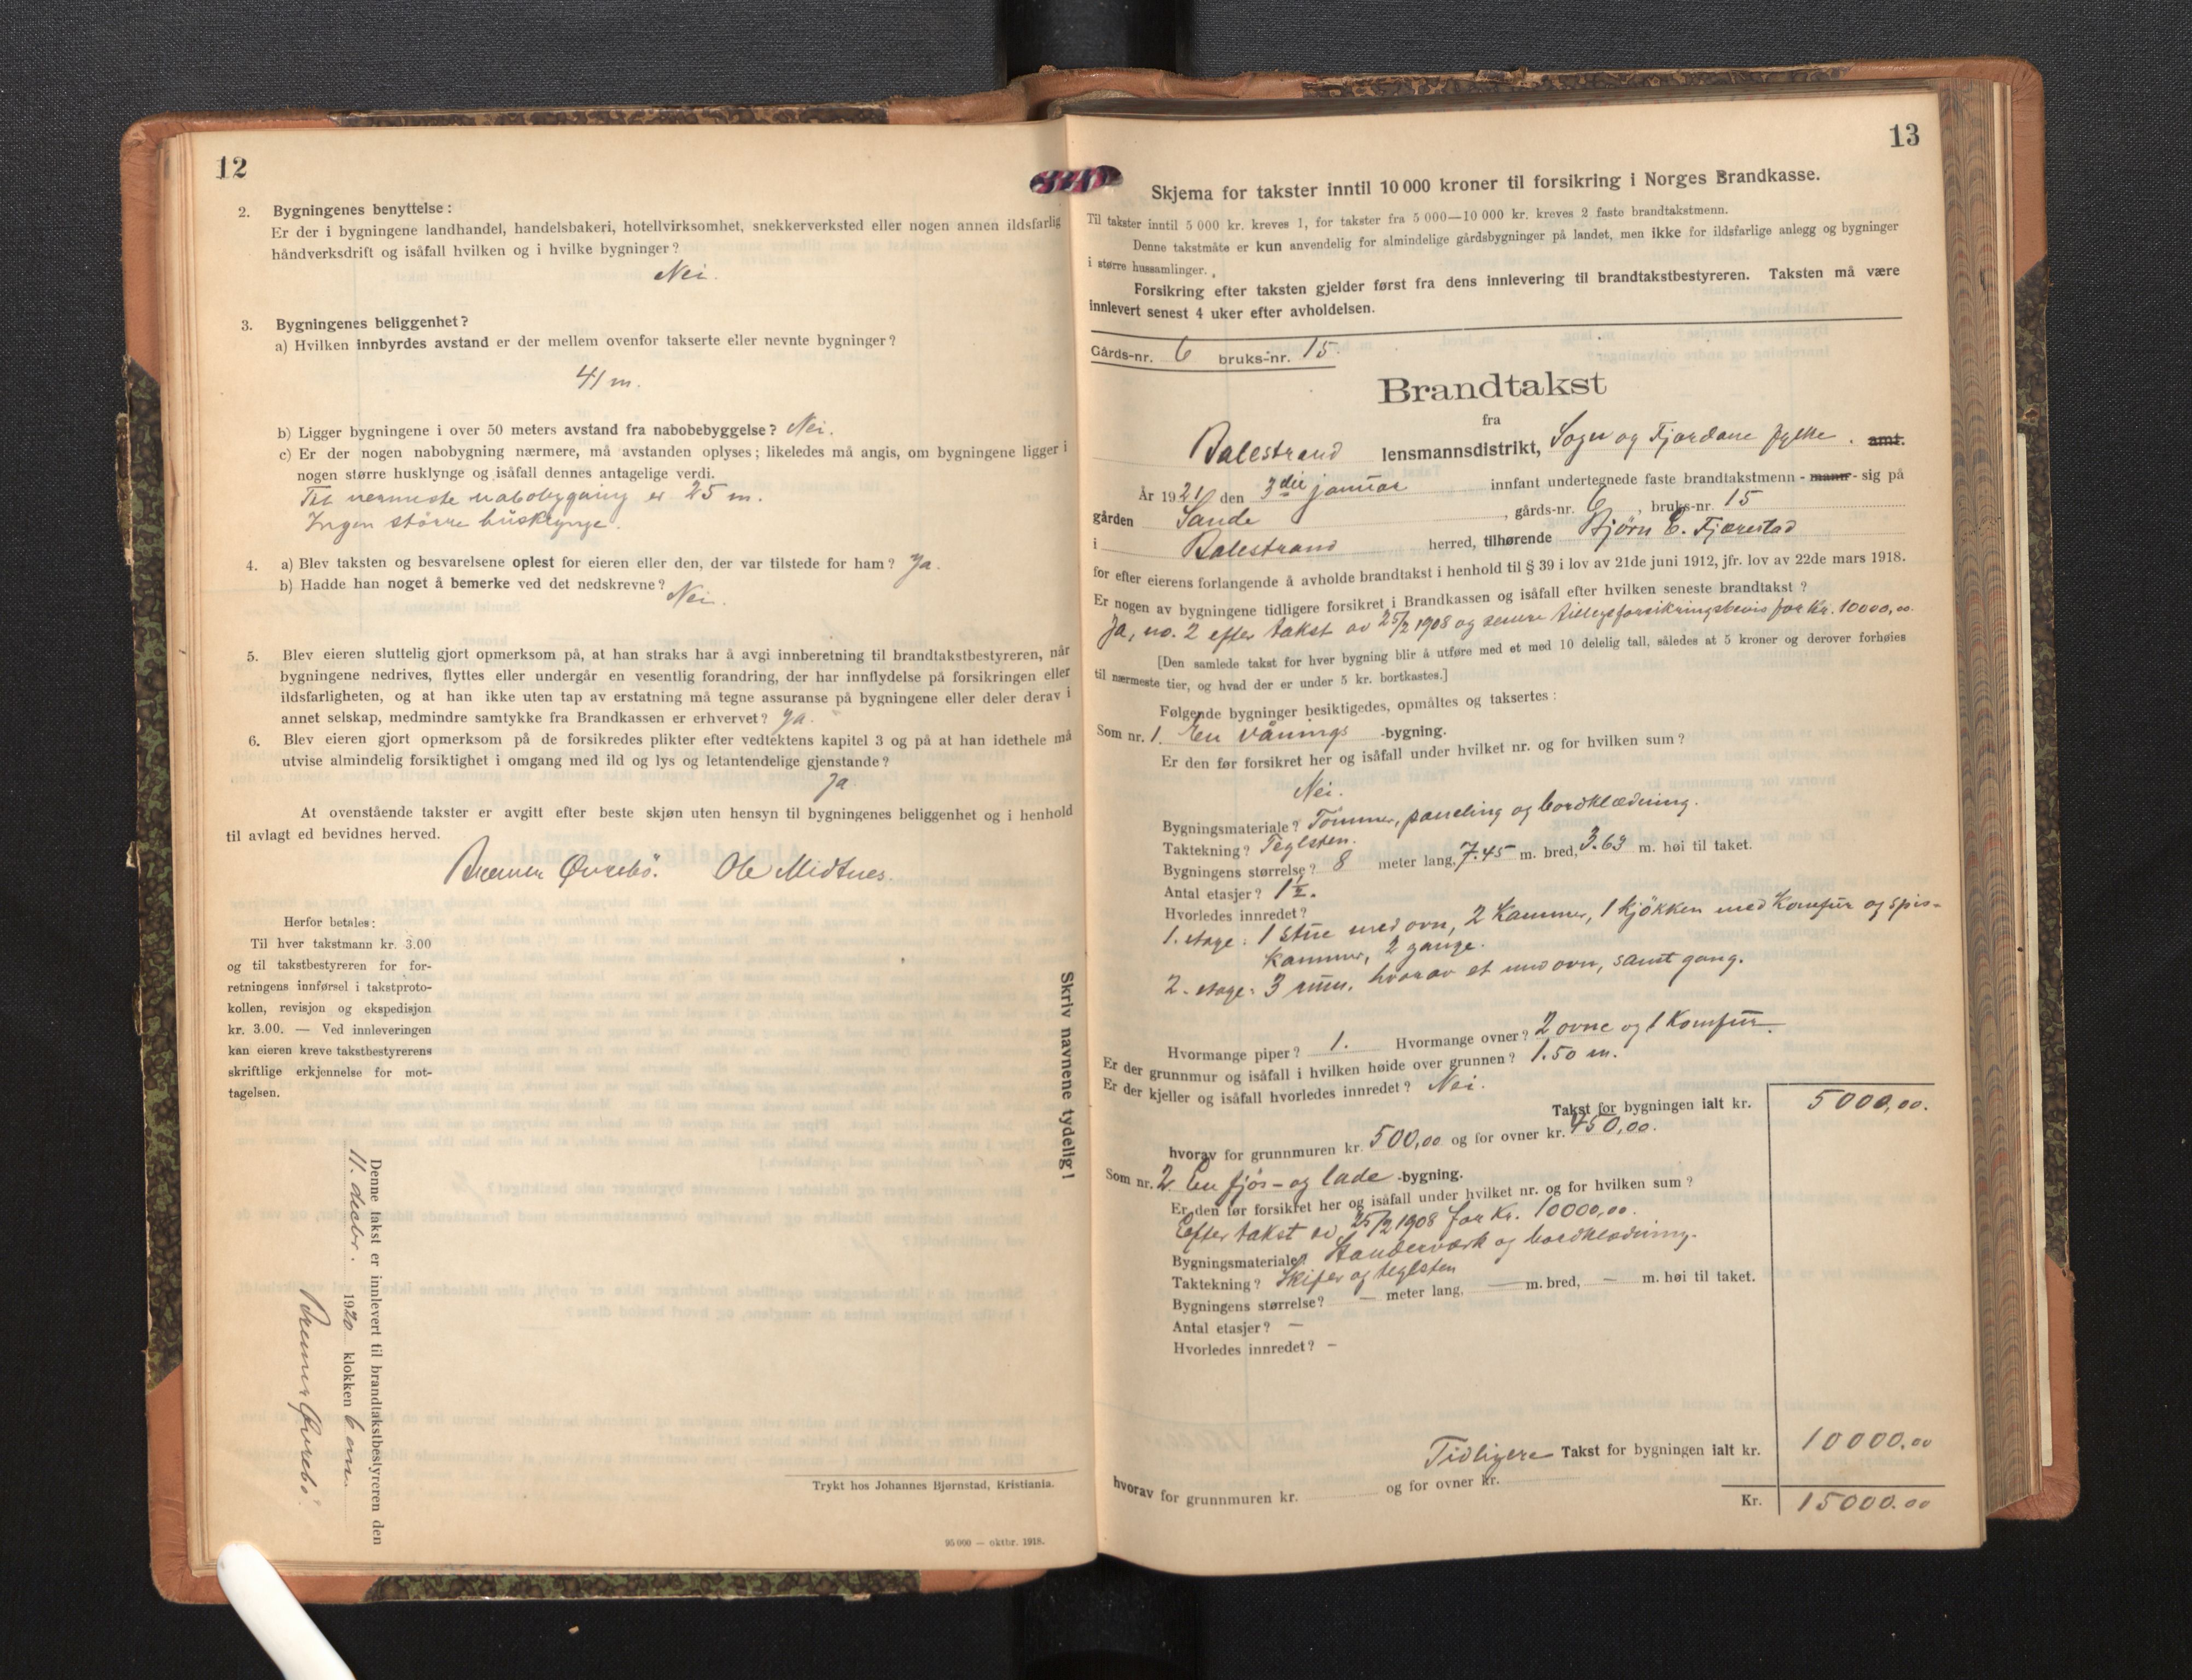 12
2. Bygningenes benyttelse:
Er der i bygningene landhandel, handelsbakeri, hotellvirksomhet, snekkerverksted eller nogen annen ildsfarlig
håndverksdrift og isåfall hvilken og i hvilke bygninger?
Nei.
3. Bygningenes beliggenhet?
a) Hvilken innbyrdes avstand er der mellem ovenfor takserte eller nevnte bygninger?
41 m.
b) Ligger bygningene i over 50 meters avstand fra nabobebyggelse? Nei.
c) Er der nogen nabobygning nærmere, må avstanden oplyses; likeledes må angis, om bygningene ligger i
nogen større husklynge og isåfall dennes antagelige verdi.
Til nermeste nabobygging er 25 m.
Ingen större husklynge.
4. a) Blev taksten og besvarelsene oplest for eieren eller den, der var tilstede for ham? Ja.
b) Hadde han noget å bemerke ved det nedskrevne? Nei.
5. Blev eieren sluttelig gjort opmerksom på, at han straks har å avgi innberetning til brandtakstbestyreren, når
bygningene nedrives, flyttes eller undergår en vesentlig forandring, der har innflydelse på forsikringen eller
ildsfarligheten, og at han ikke uten tap av erstatning må tegne assuranse på bygningene eller deler derav i
annet selskap, medmindre samtykke fra Brandkassen er erhvervet? Ja.
6. Blev eieren gjort opmerksom på de forsikredes plikter efter vedtektens kapitel 3 og på at han idethele må
utvise almindelig forsiktighet i omgang med ild og lys og letantendelige gjenstande?
Ja
At ovenstående takster er avgitt efter beste skjøn uten hensyn til bygningenes beliggenhet og i henhold
til avlagt ed bevidnes herved.
Øvrebö. Ole Midtnes.
Herfor betales:
Til hver takstmann kr. 3.00
og til takstbestyreren for for-
retningens innførsel i takstproto-
kollen, revisjon og ekspedisjon
kr. 3.00. — Ved innleveringen
kan eieren kreve takstbestyrerens
skriftlige erkjennelse for mot-
tagelsen.
Denne takst er innlevert til brandtakstbestyreren den
11. decbr. 1920 klokken 6 em.
Øvrebö.
Skriv navnene tydelig!
Trykt hos Johannes Bjørnstad, Kristiania.
95 000 — oktbr. 1918.
13
Skjema for takster inntil 10 000 kroner til forsikring i Norges Brandkasse.
Til takster inntil 5 000 kr. kreves 1, for takster fra 5 000—10 000 kr. kreves 2 faste brandtakstmenn.
Denne takstmåte er kun anvendelig for almindelige gårdsbygninger på landet, men ikke for ildsfarlige anlegg og bygninger
i større hussamlinger.
Forsikring efter taksten gjelder først fra dens innlevering til brandtakstbestyreren. Taksten må være
innlevert senest 4 uker efter avholdelsen.
Gårds-nr. 6 bruks-nr. 15.
Brandtakst
fra
Balestrand lensmannsdistrikt, Sogn og Fjordane fylke. amt.
År 1921 den 3die januar innfant undertegnede faste brandtakstmenn - mann - sig på
gården Sande, gårds-nr. 6, bruks-nr. 15
i Balestrand herred, tilhørende Bjørn E. Fjærestad
for efter eierens forlangende å avholde brandtakst i henhold til § 39 i lov av 21de juni 1912, jfr. lov av 22de mars 1918.
Er nogen av bygningene tidligere forsikret i Brandkassen og isåfall efter hvilken seneste brandtakst?
Ja, no. 2 efter takst av 25/2 1908 og senere tillegsforsikringsbevis for Kr. 10000,00.
[Den samlede takst for hver bygning blir å utføre med et med 10 delelig tall, således at 5 kroner og derover forhøies
til nærmeste tier, og hvad der er under 5 kr. bortkastes.]
Følgende bygninger besiktigedes, opmåltes og taksertes:
Som nr. 1. En vånings -bygning.
Er den før forsikret her og isåfall under hvilket nr. og for hvilken sum?
Nei.
Bygningsmateriale? Tömmer, paneling og bordklædning.
Taktekning? Teglsten.
Bygningens størrelse? 8 meter lang, 7.45 m. bred, 3.63 m. høi til taket.
Antal etasjer? 1½.
Hvorledes innredet?
1. etage: 1 stue med ovn, 2 Kammer, 1 kjökken med Komfür og spis-
kammer, 2 gange.
2. etage: 3 rüm, hvorav et med ovn, samt gang.
Hvormange piper? 1. Hvormange ovner? 2 ovne og 1 Komfür.
Er der grunnmur og isåfall i hvilken høide over grunnen? 1.50 m.
Er der kjeller og isåfall hvorledes innredet? Nei.
Takst for bygningen ialt kr. 5000,00.
hvorav for grunnmuren kr. 500,00 og for ovner kr. 450,00.
Som nr. 2. En fjös- og lade -bygning.
Er den før forsikret her og isåfall under hvilket nr. og for hvilken sum?
Efter takst av 25/2 1908 for Kr. 10000,00.
Bygningsmateriale? Standerværk og bordklædning.
Taktekning? Skifer og teglsten
Bygningens størrelse? — meter lang, — m. bred, — m. høi til taket.
Antal etasjer? —
Hvorledes innredet? —
Tidligere Takst for bygningen ialt kr. 10000.00
hvorav for grunnmuren kr. og for ovner kr.
Kr. 15000.00